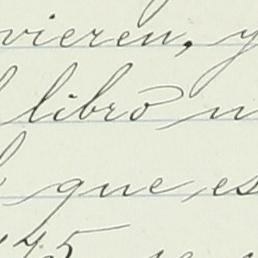 vieren, y
l libro n
que es
75